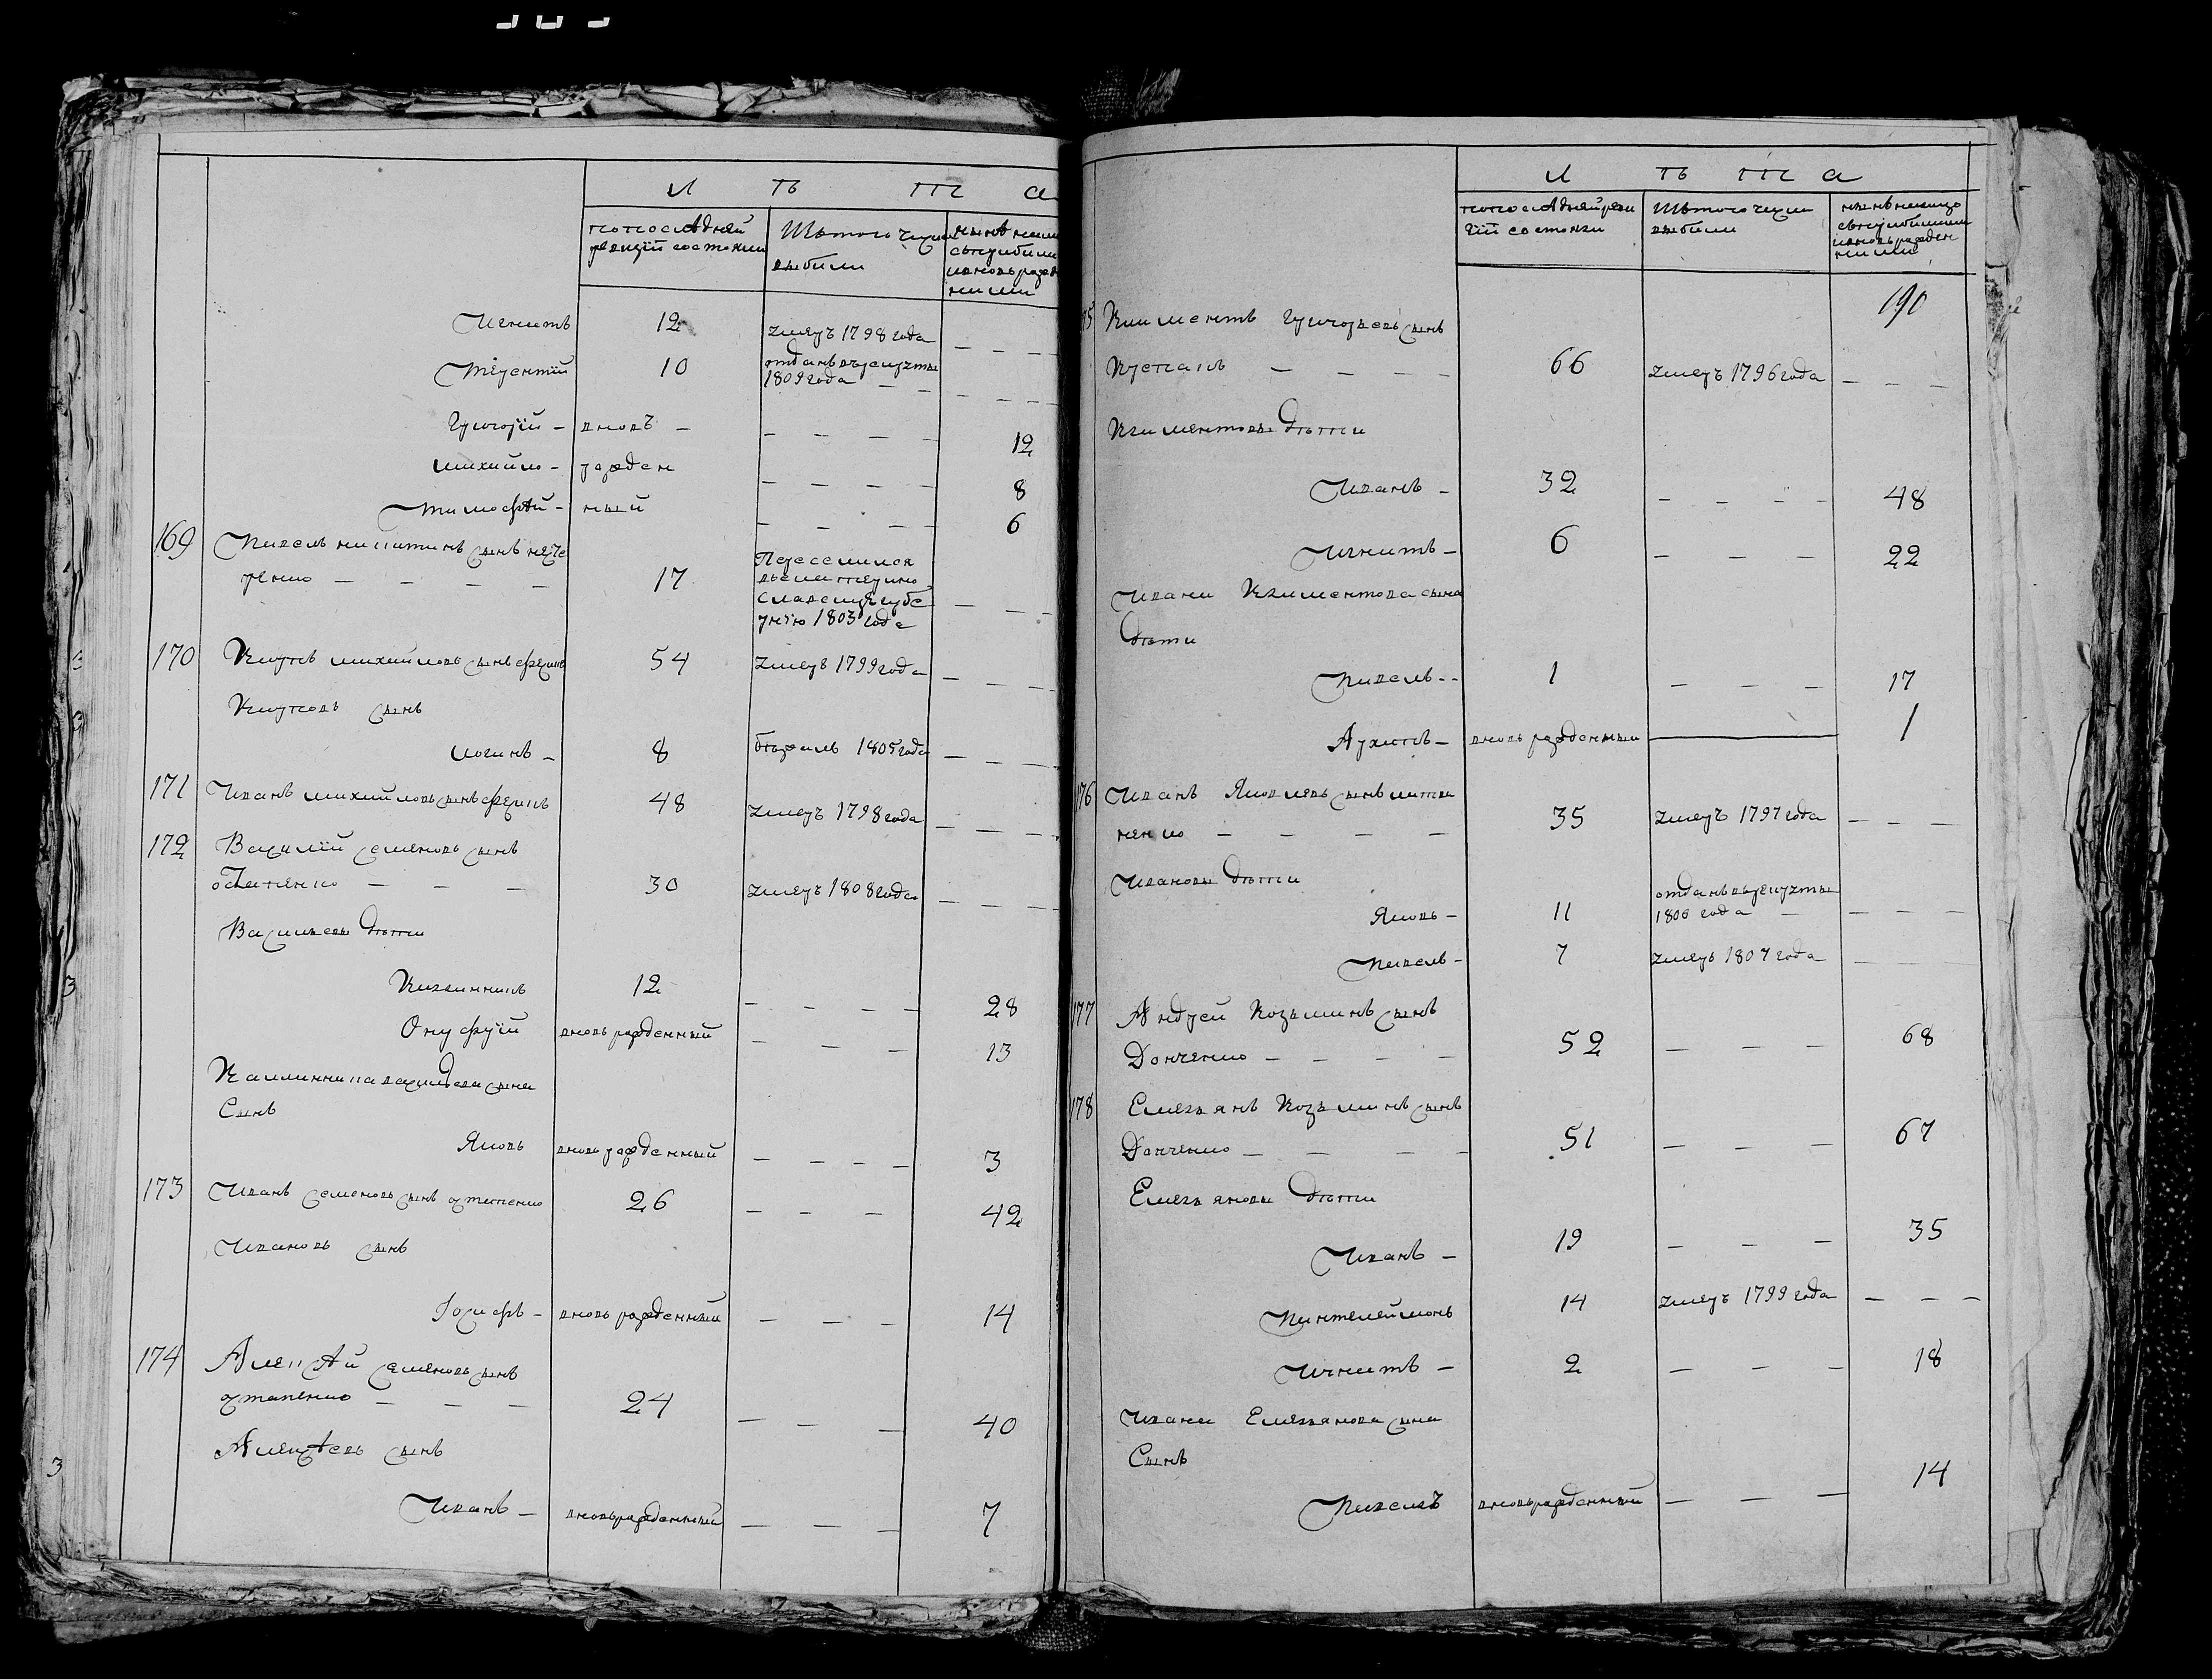 Л ѣ т а
попослѣдней
ревизїи состояли
Изтого числа
выбыли
нынѣ налицо
сприбылыми
ивновь рожден
ными
Игнатъ 12 умеръ 1798 года
Терентїй 10 отданъ врекруты
1809 года
Григорїй вновь 12
михайло рожден 8
Тимофѣй ный 6
169 Павелъ никитинъ сынъ
17 Переселился
славскую губе
рнїю 1803 года
170 Карпъ михайловъ сынъ 54 умеръ 1799 года
Карповъ сынъ
логинъ 8 бѣжалъ 1805 года
171 Иванъ михайловъ сынъ 48 умеръ 1798 года
172 Василїй семеновъ сынъ
остапенко 30 умеръ 1808 года
Васильевы дѣти
Калинникъ 12 28
Онуфрїй вновь рожденный 13
Калинника васильева сына
Сынъ
Яковъ вновь рожденный 3
173 Иванъ семеновъ сынъ остапенко 26 42
Ивановъ сынъ
Іосифъ вновь рожденный 14
174 Алексѣй семеновъ сынъ
остапенко 24 40
Алексѣевъ сынъ
Иванъ вновь рожденный 7
Л ѣ т а
попослѣдней реви
зїи состояли
Изтого числа
выбыли
нынѣ налицо
сприбылыми
ивновь рожден
ными
190
175 Климентъ григорьевъ сынъ
66 умеръ 1796 года
Климентовы дѣти
Иванъ 32 48
Игнатъ 6 22
Ивана Климентова сына
дѣти
Павелъ 1 17
Архипъ вновь рожденный 1
176 Иванъ Яковлевъ сынъ литви
ненко 35 умеръ 1797 года
Ивановы дѣти
Яковъ 11 отданъ врекруты
1806 года
Павелъ 7 умеръ 1807 года
177 Андрей Козьминъ сынъ
Донченко 52 68
178 Емельянъ Козьминъ сынъ
Донченко 51 67
Емельяновы дѣти
Иванъ 19 35
Пантелеймонъ 14 умеръ 1799 года
Игнатъ 2 18
Ивана Емельянова сына
Сынъ
Павелъ вновь рожденный 14